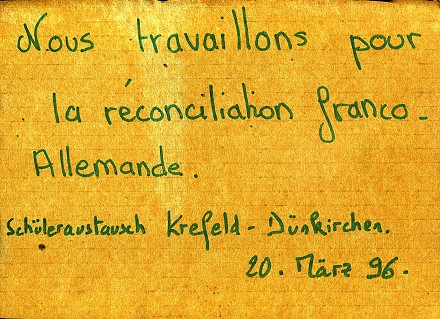 Nous travaillons pour
la réconciliation franco-
Allemande.
Schüleraustausch Krefeld - Dünkirchen.
20. März 96.